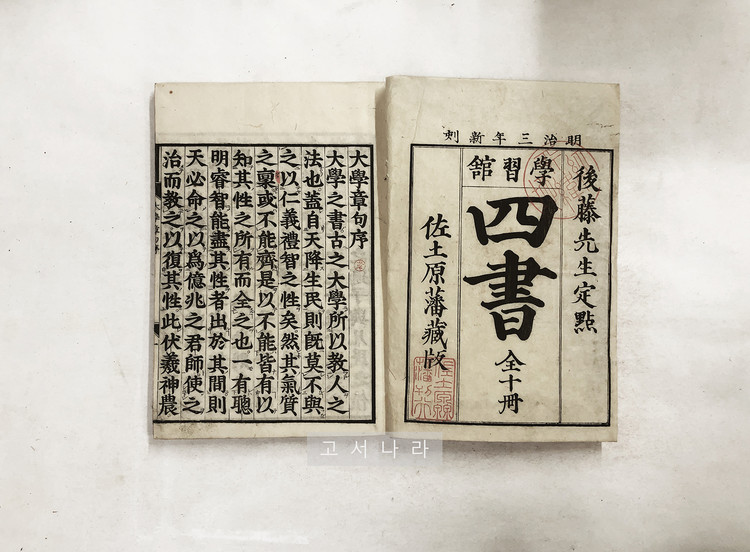 明治三年新刺
後藤先生定點
學習館
四書
全十冊
佐土原藩藏版
大學章句序
大學之書古之大學所以教人之
法也蓋自天降生民則旣莫不與
之以仁義禮智之性矣然其氣質
之稟或不能齊是以不能皆有以
知其性之所有而全之也一有聰
明睿智能盡其性者出於其間則
天必命之以爲億兆之君師使之
治而教之以復其性此伏羲神農
고서나라